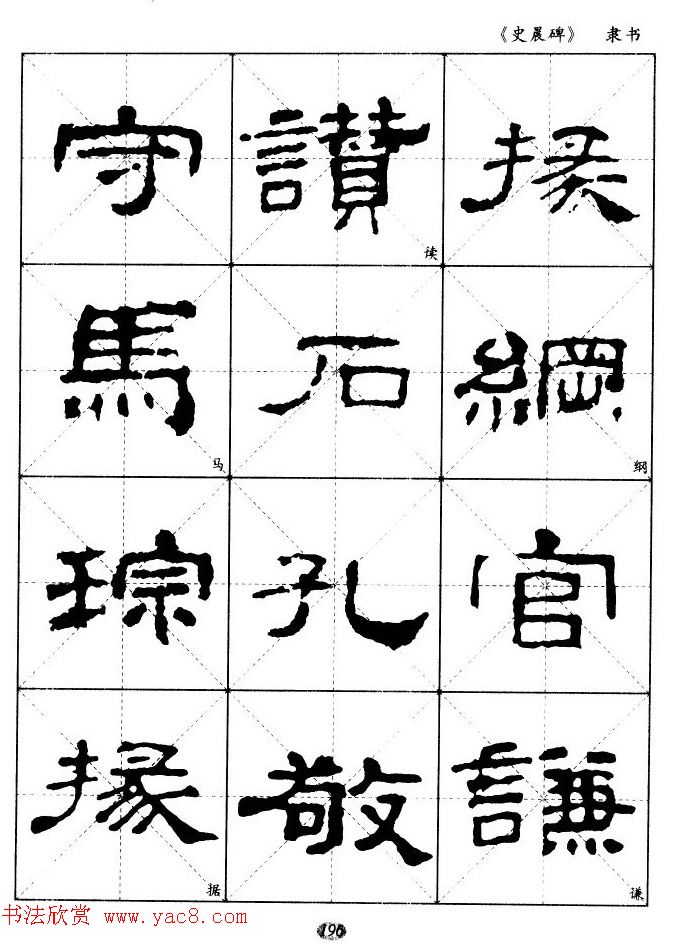 《史晨碑》 隶书
守 讃 掾
读
馬 石 綱
马 纲
琮 孔 官
掾 敬 謙
据 谦
书法欣赏 www.yac8.com